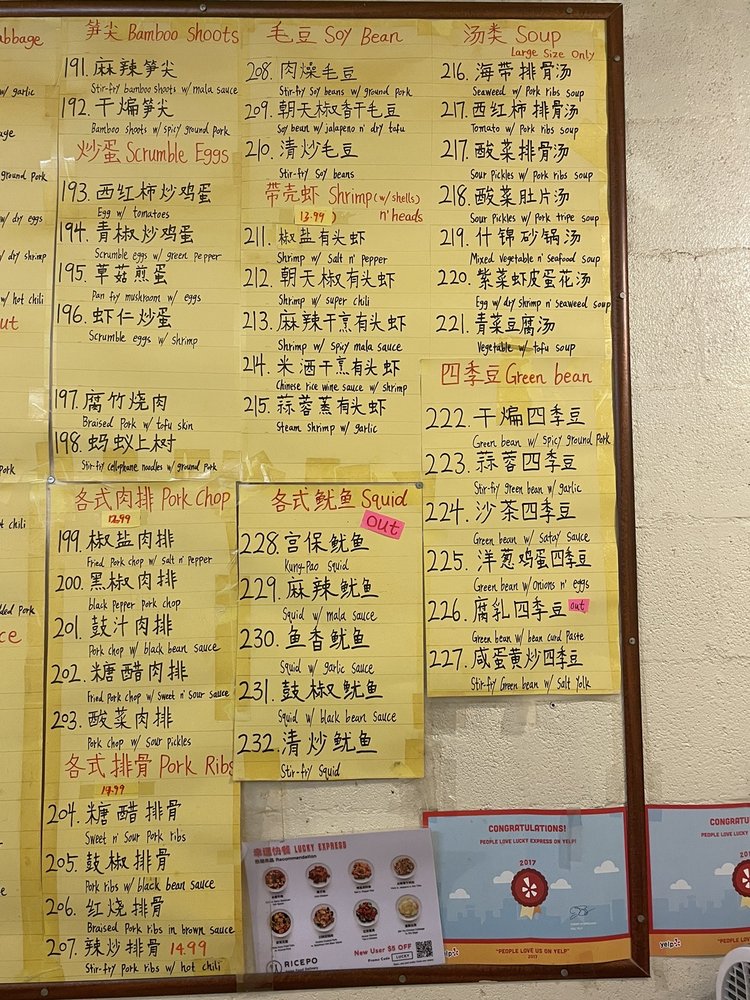 abbage
w/ garlic
age
ground pork
w/ dry eggs
w/ dry shrimp
w/ hot chili
ut
pork
t chili
ded pork
ce
笋尖 Bamboo Shoots
191. 麻辣笋尖
Stir-fry bamboo shoots w/ mala sauce
192. 干煸笋尖
Bamboo shoots w/ spicy ground pork
炒蛋 Scrumble Eggs
193. 西红柿炒鸡蛋
Egg w/ tomatoes
194. 青椒炒鸡蛋
Scrumble eggs w/ green pepper
195. 草菇煎蛋
Pan fry mushroom w/ eggs
196. 虾仁炒蛋
Scrumble eggs w/ shrimp
197. 腐竹烧肉
Braised Pork w/ tofu skin
198. 蚂蚁上树
Stir-fry cellophane noodles w/ ground pork
各式肉排 Pork Chop
12.99
199. 椒盐肉排
Fried pork chop w/ salt n' pepper
200. 黑椒肉排
black pepper pork chop
201. 鼓汁肉排
Pork chop w/ black bean sauce
202. 糖醋肉排
Fried Pork chop w/ sweet n' sour sauce
203. 酸菜肉排
Pork chop w/ sour pickles
各式排骨 Pork Ribs
14.99
204. 糖醋排骨
Sweet n' Sour Pork ribs
205. 鼓椒排骨
Pork ribs w/ black bean sauce
206. 红烧排骨
Braised Pork ribs in brown sauce
207. 辣炒排骨 14.99
Stir-fry Pork ribs w/ hot chili
毛豆 Soy Bean
208. 肉燥毛豆
Stir-fry Soy beans w/ ground pork
209. 朝天椒香干毛豆
Soy bean w/ jalapeno n' dry tofu
210. 清炒毛豆
Stir-fry Soy beans
带壳虾 Shrimp (w/ shells)
13.99 ) n' heads
211. 椒盐有头虾
Shrimp w/ Salt n' pepper
212. 朝天椒有头虾
Shrimp w/ super chili
213. 麻辣干烹有头虾
Shrimp w/ spicy mala sauce
214. 米酒干烹有头虾
Chinese rice wine sauce w/ shrimp
215. 蒜蓉蒸有头虾
Steam Shrimp w/ garlic
各式鱿鱼 Squid
out
228. 宫保鱿鱼
Kung-Pao Squid
229. 麻辣鱿鱼
Squid w/ mala sauce
230. 鱼香鱿鱼
Squid w/ garlic sauce
231. 鼓椒鱿鱼
Squid w/ black bean sauce
232. 清炒鱿鱼
Stir-fry Squid
汤类 Soup
Large Size Only
216. 海带排骨汤
Seaweed w/ Pork ribs soup
217. 西红柿排骨汤
Tomato w/ Pork ribs soup
217. 酸菜排骨汤
Sour Pickles w/ Pork ribs soup
218. 酸菜肚片汤
Sour Pickles w/ Pork tripe soup
219. 什锦砂锅汤
Mixed Vegetable n' seafood soup
220. 紫菜虾皮蛋花汤
Egg w/ dry shrimp n' seaweed soup
221. 青菜豆腐汤
Vegetable w/ tofu soup
四季豆 Green bean
222. 干煸四季豆
Green bean w/ spicy ground Pork
223. 蒜蓉四季豆
Stir-fry green bean w/ garlic
224. 沙茶四季豆
Green bean w/ satay sauce
225. 洋葱鸡蛋四季豆
Green bean w/ onions n' eggs
226. 腐乳四季豆 out
Green bean w/ bean curd paste
227. 咸蛋黄炒四季豆
Stir-fry Green bean w/ Salt yolk
幸運快餐 LUCKY EXPRESS
Recommendation
New User $5 OFF
Promo Code LUCKY
RICEPO
CONGRATULATIONS!
PEOPLE LOVE LUCKY EXPRESS ON YELP!
2017
"PEOPLE LOVE US ON YELP"
2017
CONGRATU
PEOPLE LOVE LUCKY
201
yelp
"PEOPLE